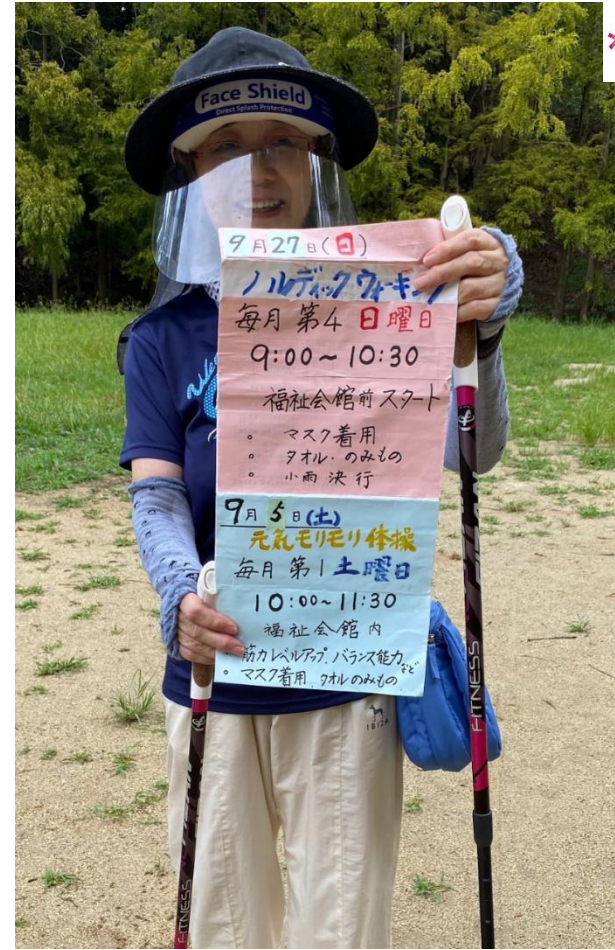 Face Shield
Direct Splash Protection
9月27日(日)
ノルディックウォーキング
毎月 第4 日曜日
9:00~10:30
福祉会館前スタート
。 マスク着用
。 タオル・のみもの
。 小雨決行
9月5日(土)
元気モリモリ体操
毎月 第1 土曜日
10:00~11:30
福祉会館内
筋力レベルアップ.バランス能力など
。マスク着用.タオル のみもの
IBIZA
FITNESS
FITNESS